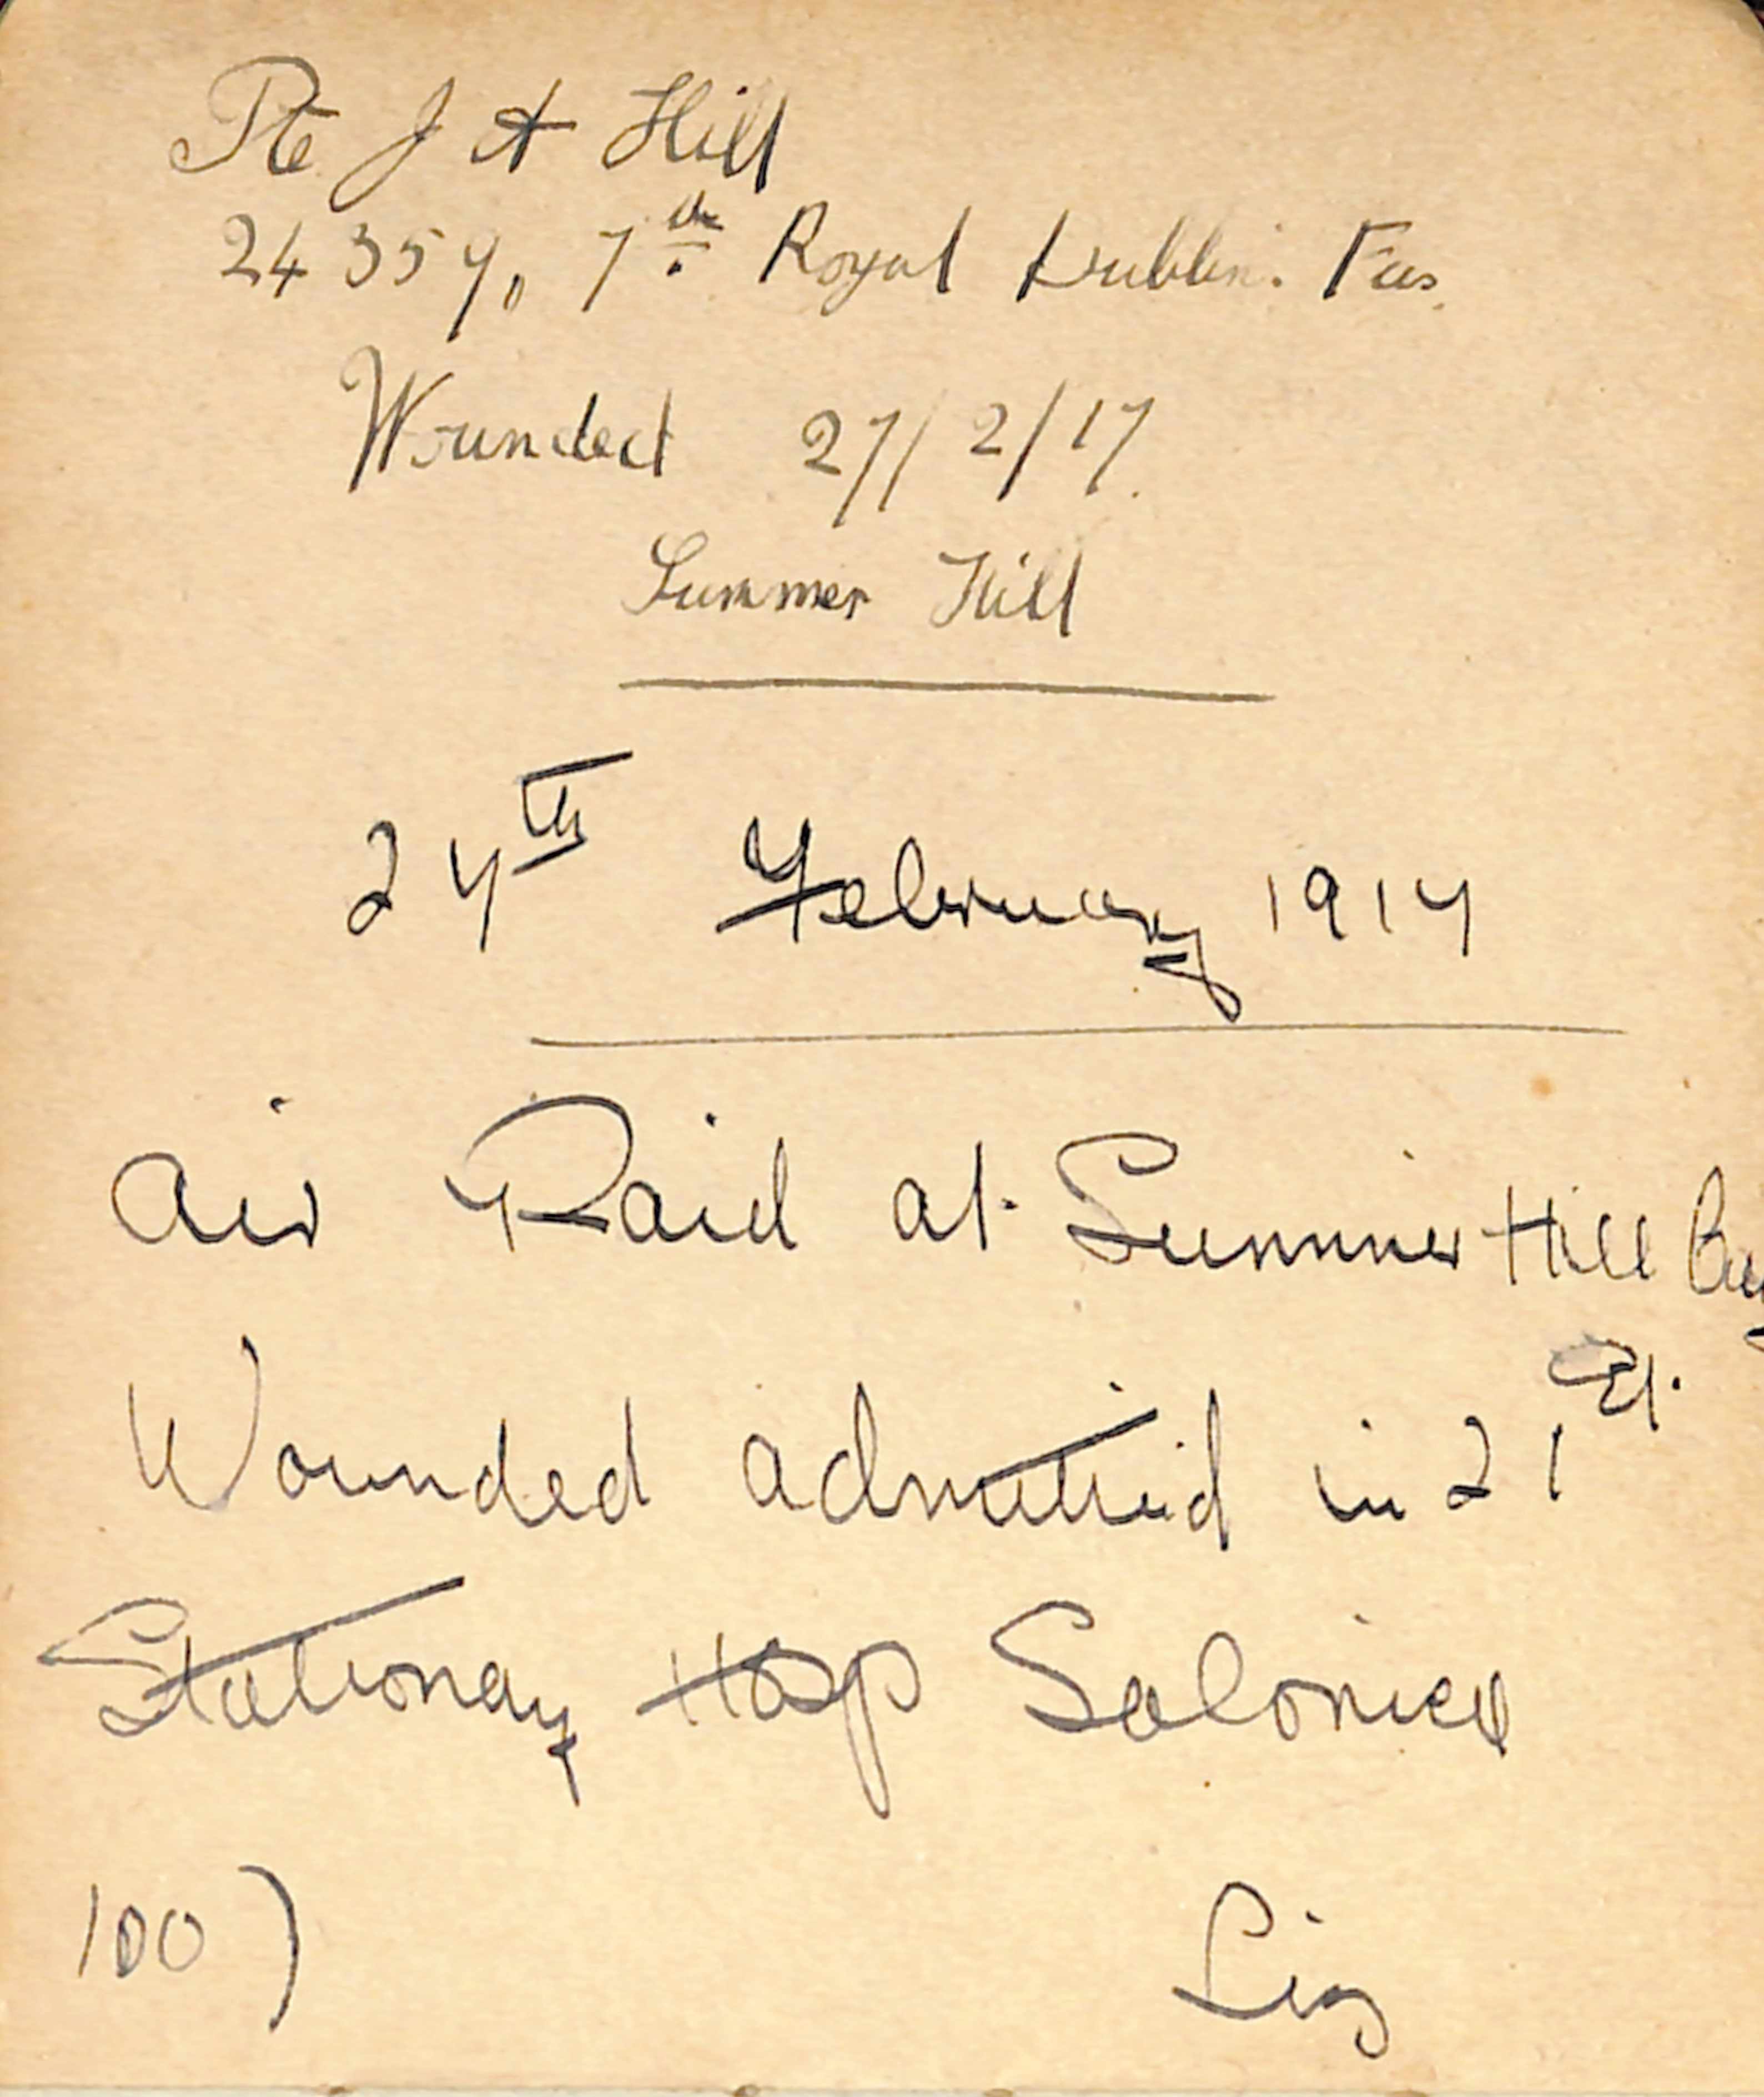 Pte J A Hill
24359, 7th Royal Dublin. Fus.
Wounded 27/2/17.
Summer Hill
27th February 1917
Air Raid at Summer Hill
Wounded admitted in 21st.
Stationary Hosp Salonica
100)